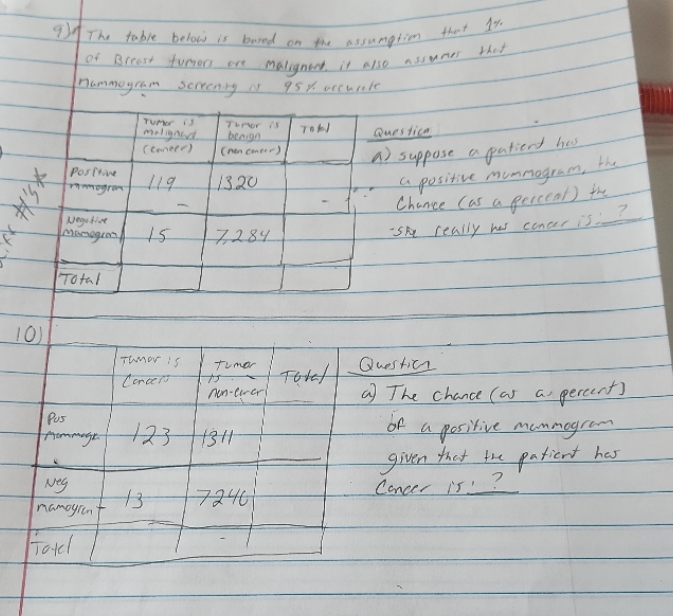 9) The table below is based on the assumption that 1%
of Breast tumors are malignant. it also assumes that
Mammogram screening is 95% accurate
Tumor is malignant (cancer) Tumor is benign (non cancer) Total
Positive mamogram 119 1320
Negative mamogram 15 7,284
Total
Question
a) suppose a patient has
a positive mammogram, the
chance (as a percent) the
she really has cancer is: ?
#15*
10)
Tumor is Cancer Tumor is non-cancer Total
Pos mammogr. 123 1311
Neg mamogram 13 7240
Total
Question
a) The chance (as a percent)
of a positive mammogram
given that the patient has
Cancer is: ?